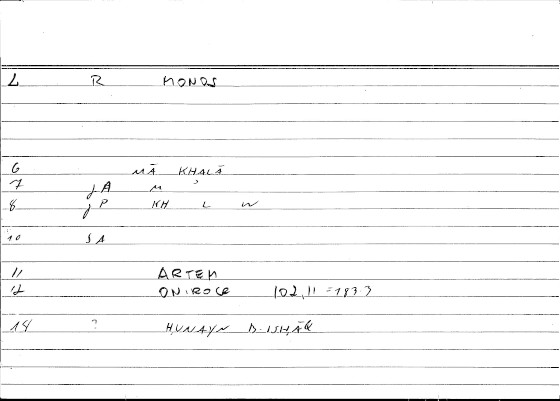 L R MONOS
6 MĀ KHALĀ
7 jA M
8 jP KH L W
10 SA
11 ARTEM
12 ONIROCR 102,11 = 183.3
14 ? ḤUNAYN B. ISḤĀQ